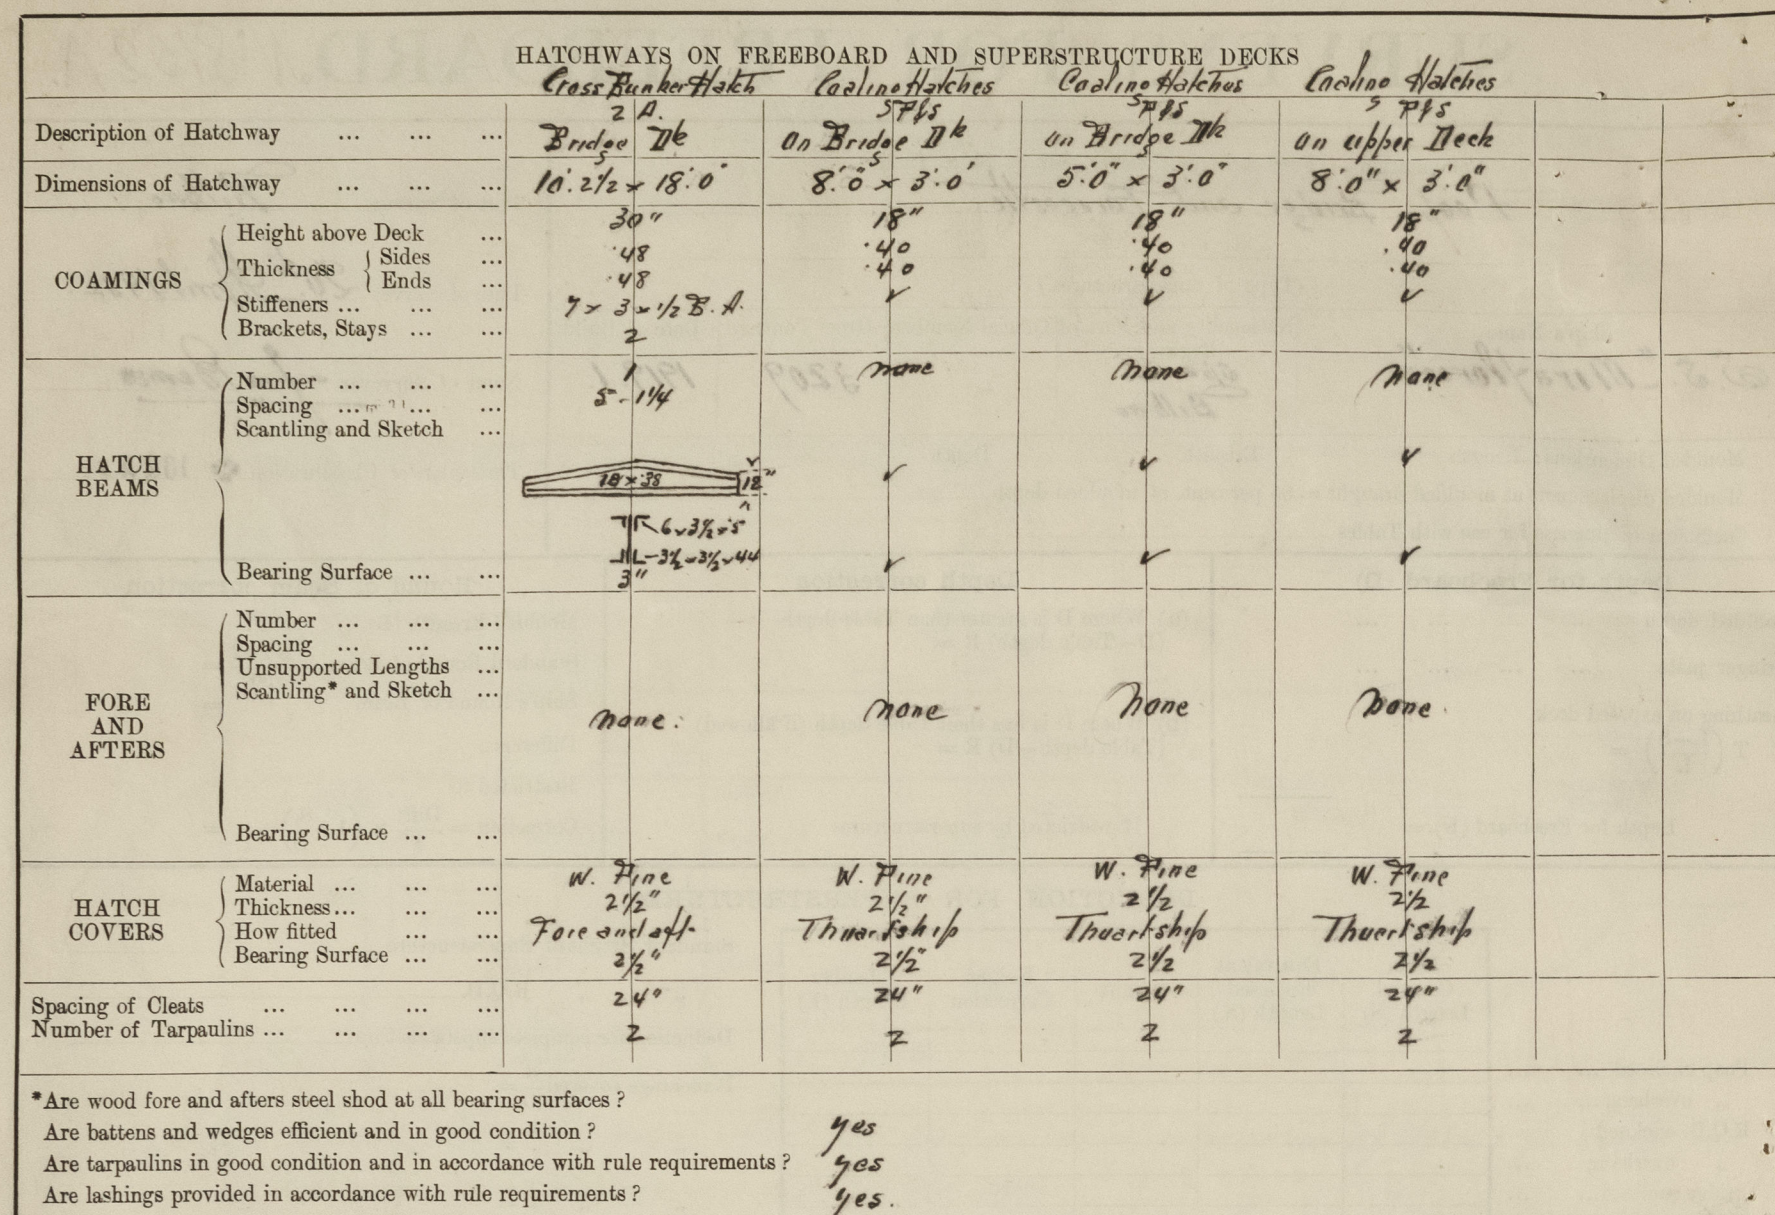 HATCHWAYS ON FREEBOARD AND SUPERSTRUCTURE DECKS
Cross Bunker Hatch Coaling Hatches Coaling Hatches Coaling Hatches
2 A. P & S P & S P & S
Description of Hatchway ... ... ... Bridge Dk on Bridge Dk on Bridge Dk on upper Deck
Dimensions of Hatchway ... ... ... 10'.2½ × 18'.0" 8'.0" × 3'.0" 5'.0" × 3'.0" 8'.0" × 3'.0"
COAMINGS
Height above Deck ... 30" 18" 18" 18"
Thickness { Sides ... .48 .40 .40 .40
Ends ... .48 .40 .40 .40
Stiffeners ... ... ... 7 × 3 × ½ B. A. ✓ ✓ ✓
Brackets, Stays ... ... 2
HATCH BEAMS
Number ... ... ... 1 none none none
Spacing ... ... ... 5 - 1¼
Scantling and Sketch ...
18 × 38 12" ✓ ✓ ✓
6 × 3½ × .5
3½ × 3½ × .44
Bearing Surface ... ... 3" ✓ ✓ ✓
FORE AND AFTERS
Number ... ... ...
Spacing ... ... ...
Unsupported Lengths ...
Scantling* and Sketch ...
none. none none none.
Bearing Surface ... ...
HATCH COVERS
Material ... ... ... W. Pine W. Pine W. Pine W. Pine
Thickness... ... ... 2½" 2½" 2½ 2½
How fitted ... ... Fore and aft Thwartship Thwartship Thwartship
Bearing Surface ... ... 2½" 2½" 2½ 2½
Spacing of Cleats ... ... ... ... 24" 24" 24" 24"
Number of Tarpaulins ... ... ... ... 2 2 2 2
*Are wood fore and afters steel shod at all bearing surfaces ?
Are battens and wedges efficient and in good condition ? yes
Are tarpaulins in good condition and in accordance with rule requirements ? yes
Are lashings provided in accordance with rule requirements ? yes.